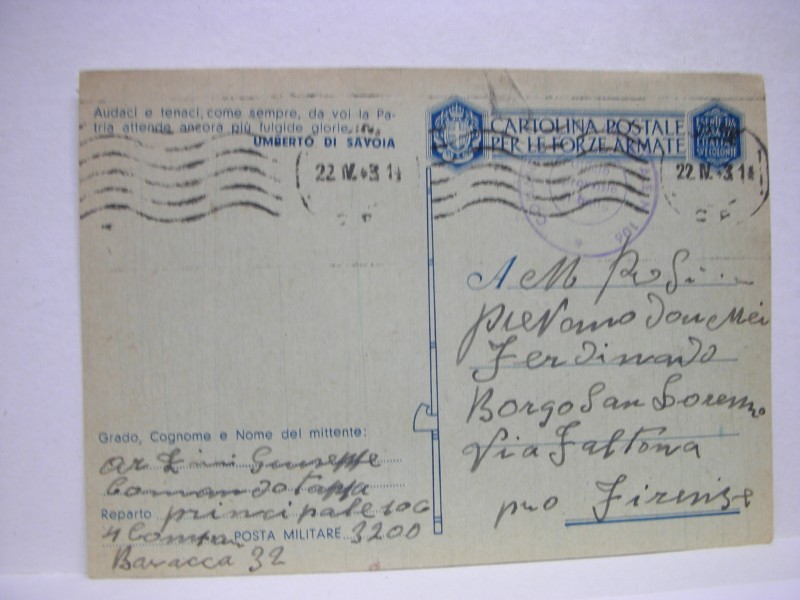 Audaci e tenaci, come sempre, da voi la Pa-
tria attende ancora più fulgide glorie.
UMBERTO DI SAVOIA
CARTOLINA POSTALE
PER LE FORZE ARMATE
22 IV 43 1
22 IV 43 18
108
A M
Don Mei
Ferdinando
Borgo San Lorenzo
Via Faltona
Firenze
Grado, Cognome e Nome del mittente:
Giuseppe
Comando Tappa
Reparto principale 106
4 POSTA MILITARE 3200
Baracca 32